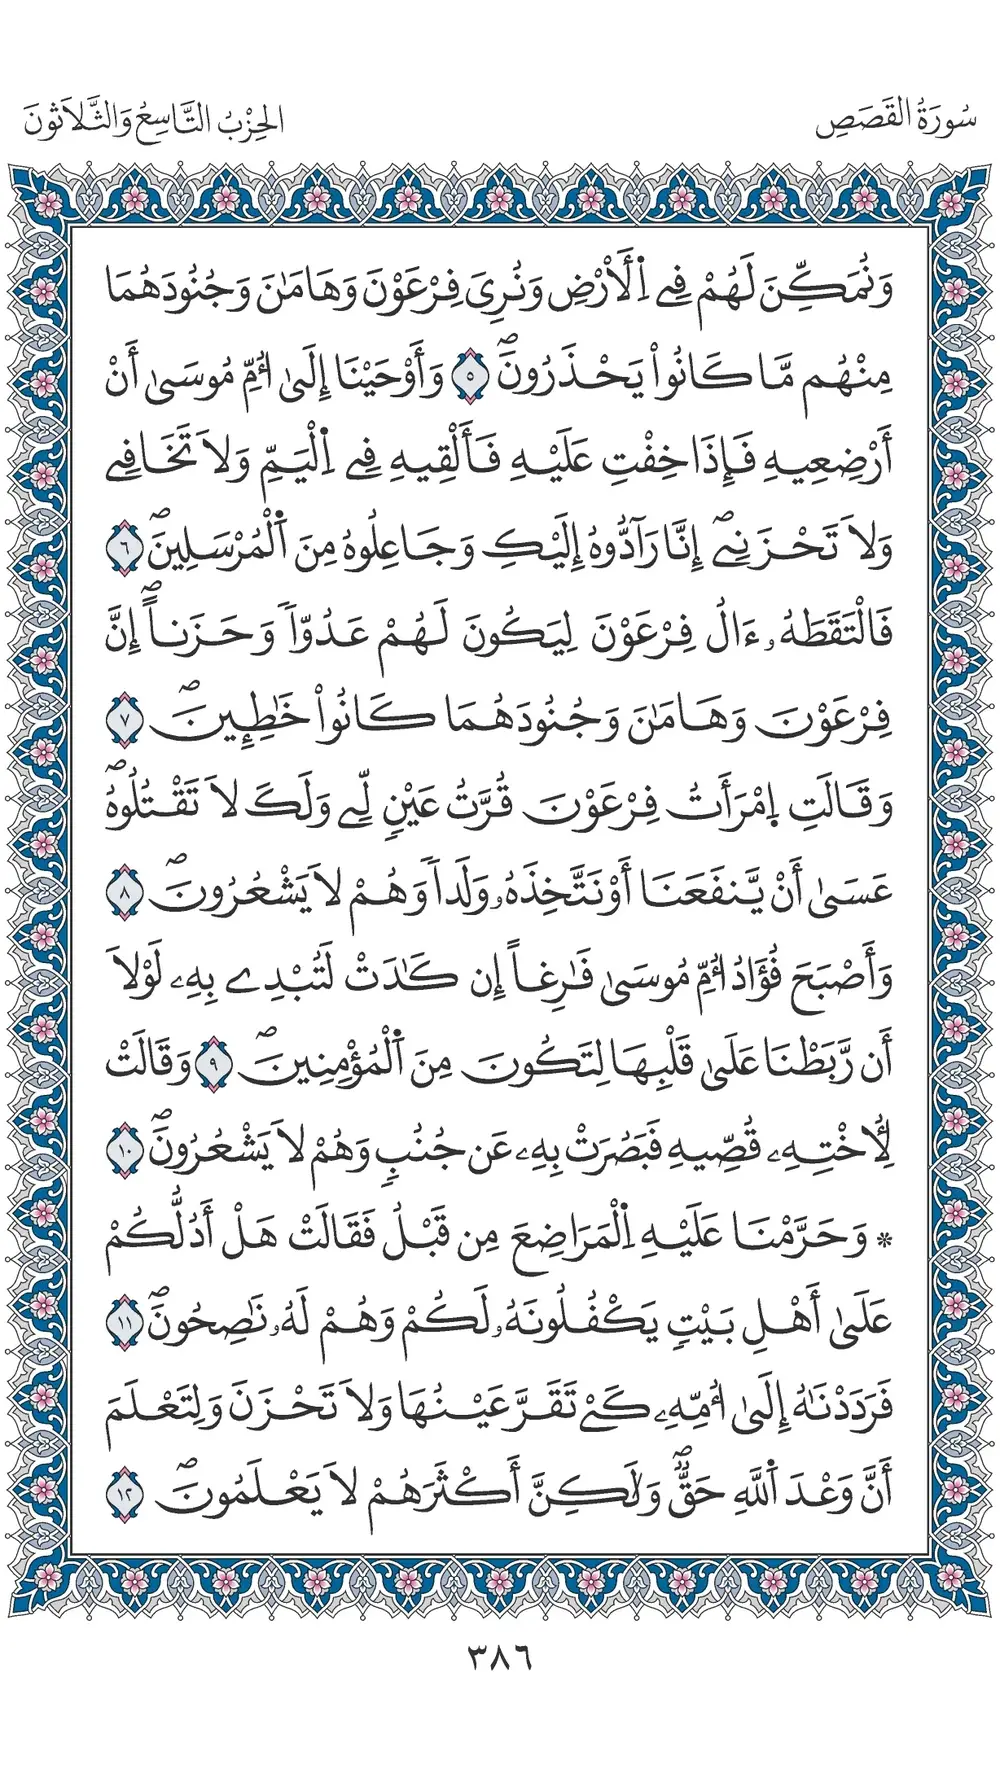 سُورَةُ القَصَصِ
الحِزْبُ التَّاسِعُ وَالثَّلَاثُونَ
وَنُمَكِّنَ لَهُمْ فِے اِ۬لَارْضِ وَنُرِيَ فِرْعَوْنَ وَهَامَٰنَ وَجُنُودَهُمَا
مِنْهُم مَّا كَانُواْ يَحْذَرُونَۖ ٥ وَأَوْحَيْنَا إِلَىٰ أُمِّ مُوسَىٰ أَنْ
أَرْضِعِيهِ فَإِذَا خِفْتِ عَلَيْهِ فَأَلْقِيهِ فِے اِ۬لْيَمِّ وَلَا تَخَافِے
وَلَا تَحْزَنِےۖ إِنَّا رَآدُّوهُ إِلَيْكِ وَجَاعِلُوهُ مِنَ اَ۬لْمُرْسَلِينَۖ ٦
فَالْتَقَطَهُۥ ءَالُ فِرْعَوْنَ لِيَكُونَ لَهُمْ عَدُوّاٗ وَحَزَناًۖ إِنَّ
فِرْعَوْنَ وَهَامَٰنَ وَجُنُودَهُمَا كَانُواْ خَٰطِـِٕينَۖ ٧
وَقَالَتِ اِ۪مْرَأَتُ فِرْعَوْنَ قُرَّتُ عَيْنٖ لِّے وَلَكَ لَا تَقْتُلُوهُۖ
عَسَىٰ أَنْ يَّنفَعَنَا أَوْ نَتَّخِذَهُۥ وَلَداٗ وَهُمْ لَا يَشْعُرُونَۖ ٨
وَأَصْبَحَ فُؤَادُ أُمِّ مُوسَىٰ فَٰرِغاً إِن كَٰدَتْ لَتُبْدِے بِهِۦ لَوْلَا
أَن رَّبَطْنَا عَلَىٰ قَلْبِهَا لِتَكُونَ مِنَ اَ۬لْمُؤْمِنِينَۖ ٩ وَقَالَتْ
لِأُخْتِهِۦ قُصِّيهِ فَبَصُرَتْ بِهِۦ عَن جُنُبٖ وَهُمْ لَا يَشْعُرُونَۖ ١٠
* وَحَرَّمْنَا عَلَيْهِ اِ۬لْمَرَاضِعَ مِن قَبْلُ فَقَالَتْ هَلْ أَدُلُّكُمْ
عَلَىٰ أَهْلِ بَيْتٖ يَكْفُلُونَهُۥ لَكُمْ وَهُمْ لَهُۥ نَٰصِحُونَۖ ١١
فَرَدَدْنَٰهُ إِلَىٰ أُمِّهِۦ كَےْ تَقَرَّ عَيْنُهَا وَلَا تَحْزَنَ وَلِتَعْلَمَ
أَنَّ وَعْدَ اَ۬للَّهِ حَقّٞۖ وَلَٰكِنَّ أَكْثَرَهُمْ لَا يَعْلَمُونَۖ ١٢
٣٨٦